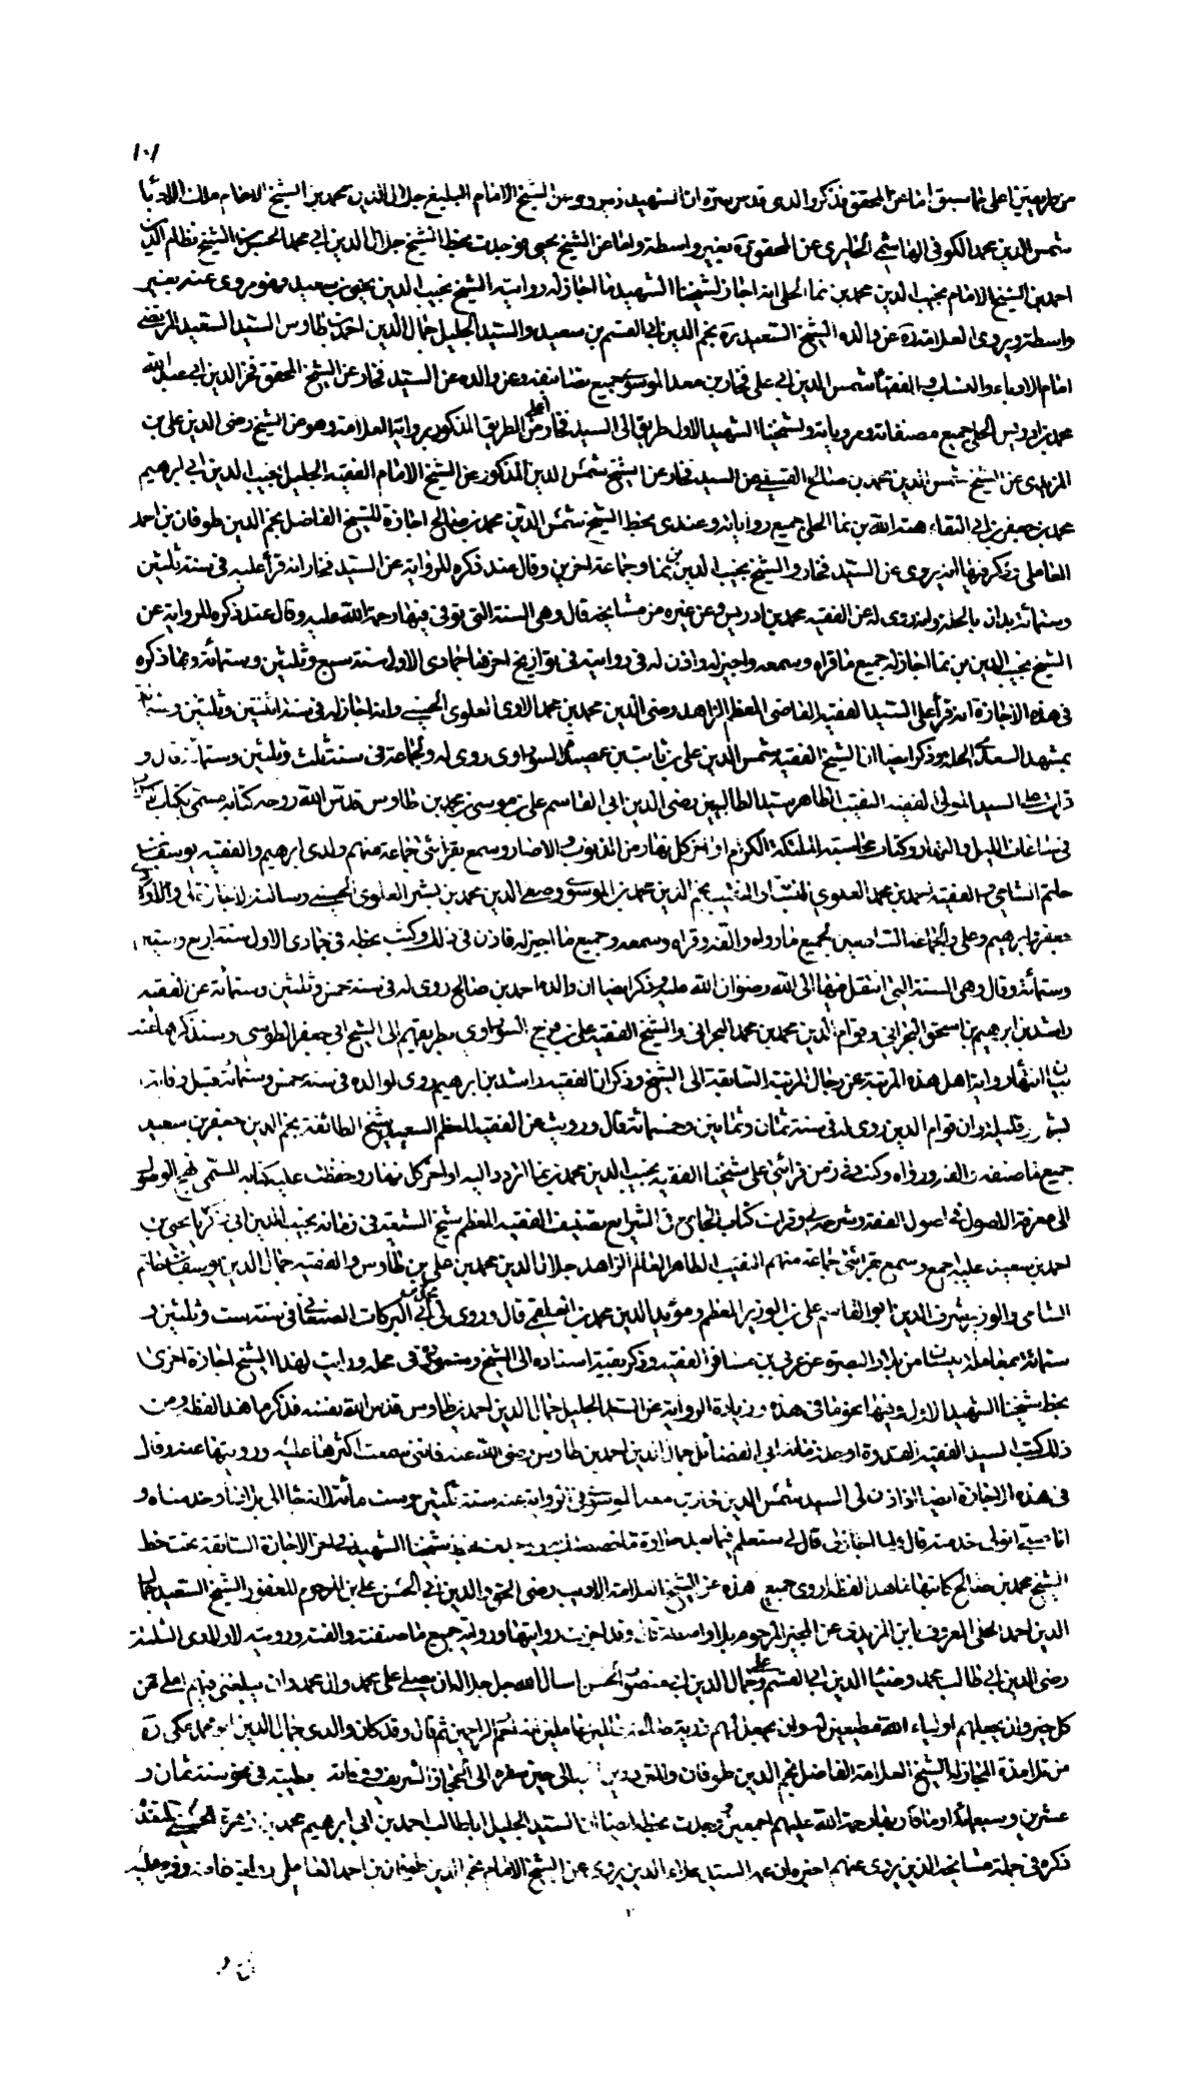 ١٠١
من طريقين اعلى مما سبق اما عن المحقق فذكر والدى قدس سره ان الشهيد ره يروى عن الشيخ الامام البليغ جلال الدين محمد بن الشيخ الامام ملك الادباء
شمس الدين محمد الكوفى الهاشمى الحايرى عن المحقق ره بغير واسطة واما عن الشيخ يحيى فوجدت بخط الشيخ جلال الدين ابى محمد الحسن بن الشيخ نظام الدين
احمد بن الشيخ الامام نجيب الدين محمد بن نما الحلى انه اجاز لشيخنا الشهيد ما اجاز له روايته الشيخ نجيب الدين يحيى بن سعيد وهو يروى عنه بغير
واسطة ويروى العلامة ره عن والده الشيخ السعيد ره نجم الدين ابى القسم بن سعيد والسيد الجليل جمال الدين احمد بن طاوس السيد السعيد المرتضى
امام الادباء والنساب والفقهاء شمس الدين ابى على فخار بن معد الموسوى جميع تصانيفه وعن والده عن السيد فخار عن الشيخ المحقق فخر الدين ابى عبد الله
محمد بن ادريس الحلى جميع مصنفاته ومروياته ولشيخنا الشهيد الاول طريق الى السيد فخار اعلى من الطريق المذكور برواية العلامة وهو من الشيخ رضى الدين على بن
المزيدى عن الشيخ شمس الدين محمد بن صالح القسينى عن السيد فخار وعن الشيخ شمس الدين المذكور عن الشيخ الامام الفقيه الجليل نجيب الدين ابى ابرهيم
محمد بن جعفر بن ابى البقاء هبة الله بن نما الحلى جميع رواياته وعندى بخط الشيخ شمس الدين محمد بن صالح اجازة للشيخ الفاضل نجم الدين طومان بن احمد
العاملى وذكر فيها انه يروى عن السيد فخار والشيخ نجيب الدين بن نما وجماعة اخرين وقال عند ذكره للرواية عن السيد فخار انه قرأ عليه فى سنة ثلثين
وستمائة بداره بالحلة وانه روى له عن الفقيه محمد بن ادريس وعن غيره من مشايخه قال وهى السنة التى توفى فيها رحمة الله عليه وقال عند ذكره للرواية عن
الشيخ نجيب الدين بن نما اجاز له جميع ما قراه وسمعه واجيز له واذن له فى روايته فى تواريخ اخرها جمادى الاولى سنة سبع وثلثين وستمائة ومما ذكره
فى هذه الاجازة انه قرأ على السيد الفقيه القاضى المعظم الزاهد رضى الدين محمد بن محمد الاوى العلوى الحسينى وانه اجاز له فى سنة اثنتين وثلثين وستمائة
الحلة وذكر ايضا ان الشيخ الفقيه شمس الدين على بن ثابت بن عصيدة السوراوى روى له ولجماعة فى سنة ثلث وثلثين وستمائة قال و
قرأت على السيد المولى الفقيه النقيب الطاهر سيد الطالبيين رضى الدين ابى القاسم على بن موسى بن محمد بن طاوس قدس الله روحه كتابه مسمى بكتاب
فى ساعات الليل والنهار وكتاب محاسبة الملئكة الكرام اواخر كل نهار من الذنوب والاصار وسمع بقرائتى جماعة منهم ولدى ابرهيم والفقيه يوسف بن
حاتم الشامى والفقيه احمد بن محمد العلوى النسابة والنقيب نجم الدين محمد بن الموسوى وصفى الدين محمد بن بشير العلوى الحسينى وسالته الاجازة لى ولاولادى
جعفر وابرهيم وعلى والجماعة السامعين لجميع ما رواه والفه وقراه وسمعه وجميع ما اجيز له فاذن فى ذلك وكتب بخطه فى جمادى الاولى سنة اربع وستين
وستمائة وقال وهى السنة التى انتقل فيها الى الله رضوان الله عليه وذكر ايضا ان والده احمد بن صالح روى له فى سنة خمس وثلثين وستمائة عن الفقيه
راشد بن ابرهيم بن اسحق البحرانى وقوام الدين محمد بن محمد البحرانى والشيخ الفقيه على بن فرج السوراوى بطريقهم الى الشيخ ابى جعفر الطوسى وسنذكرها عند
بيان انتهاء رواية اهل هذه المرتبة عن رجال المرتبة السابقة الى الشيخ وذكر ان الفقيه راشد بن ابرهيم روى لوالده فى سنة خمس وستمائة قبيل وفاته
قليلة وان قوام الدين روى له فى سنة ثمان وثمانين وخمسمائة قال ورويت عن الفقيه المعظم السعيد شيخ الطائفة نجم الدين جعفر بن سعيد
جميع ما صنفه والفه ورواه وكنت فى زمن قرائتى على شيخنا الفقيه نجيب الدين محمد بن نما اتردد اليه اواخر كل نهار وحفظت عليه كتابه المسمى نهج الوصول
الى معرفة الاصول فى اصول الفقه وشرحه لى وقرات كتاب الجامع فى الشرايع تصنيف الفقيه المعظم شيخ الشيعة فى زمانه نجيب الدين ابى زكريا يحيى بن
احمد بن سعيد عليه اجمع وسمع بقرائتى جماعة منهم النقيب الطاهر العالم الزاهد جلال الدين محمد بن على بن طاوس والفقيه جمال الدين يوسف بن حاتم
الشامى والوزير شرف الدين ابو القاسم على بن الوزير المعظم مؤيد الدين محمد بن العلقمى قال وروى لى محمد بن ابى البركات الصنعانى فى سنة ست وثلثين و
ستمائة عن عربى بن مسافر الفقيه وذكر بقية اسناده الى الشيخ فى محله ورايت لهذا الشيخ اجازة اخرى
بخط شيخنا الشهيد الاول وفيها نحو ما فى هذه وزيادة الرواية عن السيد الجليل جمال الدين احمد بن طاوس قدس الله نفسه فذكر ما هذا لفظه ومن
ذلك كتب السيد الفقيه القدوة اوحد زمانه ابى الفضائل جمال الدين احمد بن طاوس رضى الله عنه فاننى سمعت اكثرها عليه ورويتها عنه وقال
فى هذه الاجازة ايضا اذن لى السيد شمس الدين فخار بن معد الموسوى فى الرواية عنه سنة ثلثين وست مائة الى بلادنا وخدمناه و
انا صبى اتولى خدمته قال ولما اجازنى قال لى ستعلم فيما بعد حلاوة ما خصصتك به شيخنا الشهيد الاجازة السابقة تحت خط
الشيخ محمد بن صالح كاتبها ما هذا لفظه اروى جميع هذه عن الشيخ العلامة الاديب رضى الحق والدين ابى الحسن على بن المرحوم المغفور الشيخ السعيد جمال
الدين احمد الحلى المعروف بابن المزيدى عن المجيز المرحوم بلا واسطة وقد اجزت روايتها ورواية جميع ما صنفته والفته ورويته لاولادى الثلثة
رضى الدين ابى طالب محمد وضياء الدين ابى القسم على وجمال الدين ابى منصور الحسن اسال الله جل جلاله ان يصلى على محمد وال محمد وان يبلغنى فيهم املى من
كل خير وان يجعلهم اولياء الله مطيعين له وان يجعل لهم ذرية صالحة عالمين عاملين انه ارحم الراحمين ثم قال وقد كان والدى جمال الدين ابو محمد مكى ره
من تلامذة المجاز له الشيخ العلامة الفاضل نجم الدين طومان والمترددين اليه الى حين سفره الى الحجاز الشريف ووفاته بطيبة فى نحو سنة ثمان و
عشرين وسبعمائة او ما قاربها رحمة الله عليهم اجمعين ووجدت بخطه ايضا ان السيد الجليل ابا طالب احمد بن ابى ابرهيم محمد بن زهرة الحسينى
ذكره فى جملة مشايخه الذين يروى عنهم اخبره ان عمه السيد علاء الدين يروى عن الشيخ الامام نجم الدين طومان بن احمد العاملى رواية عامة وقره عليه